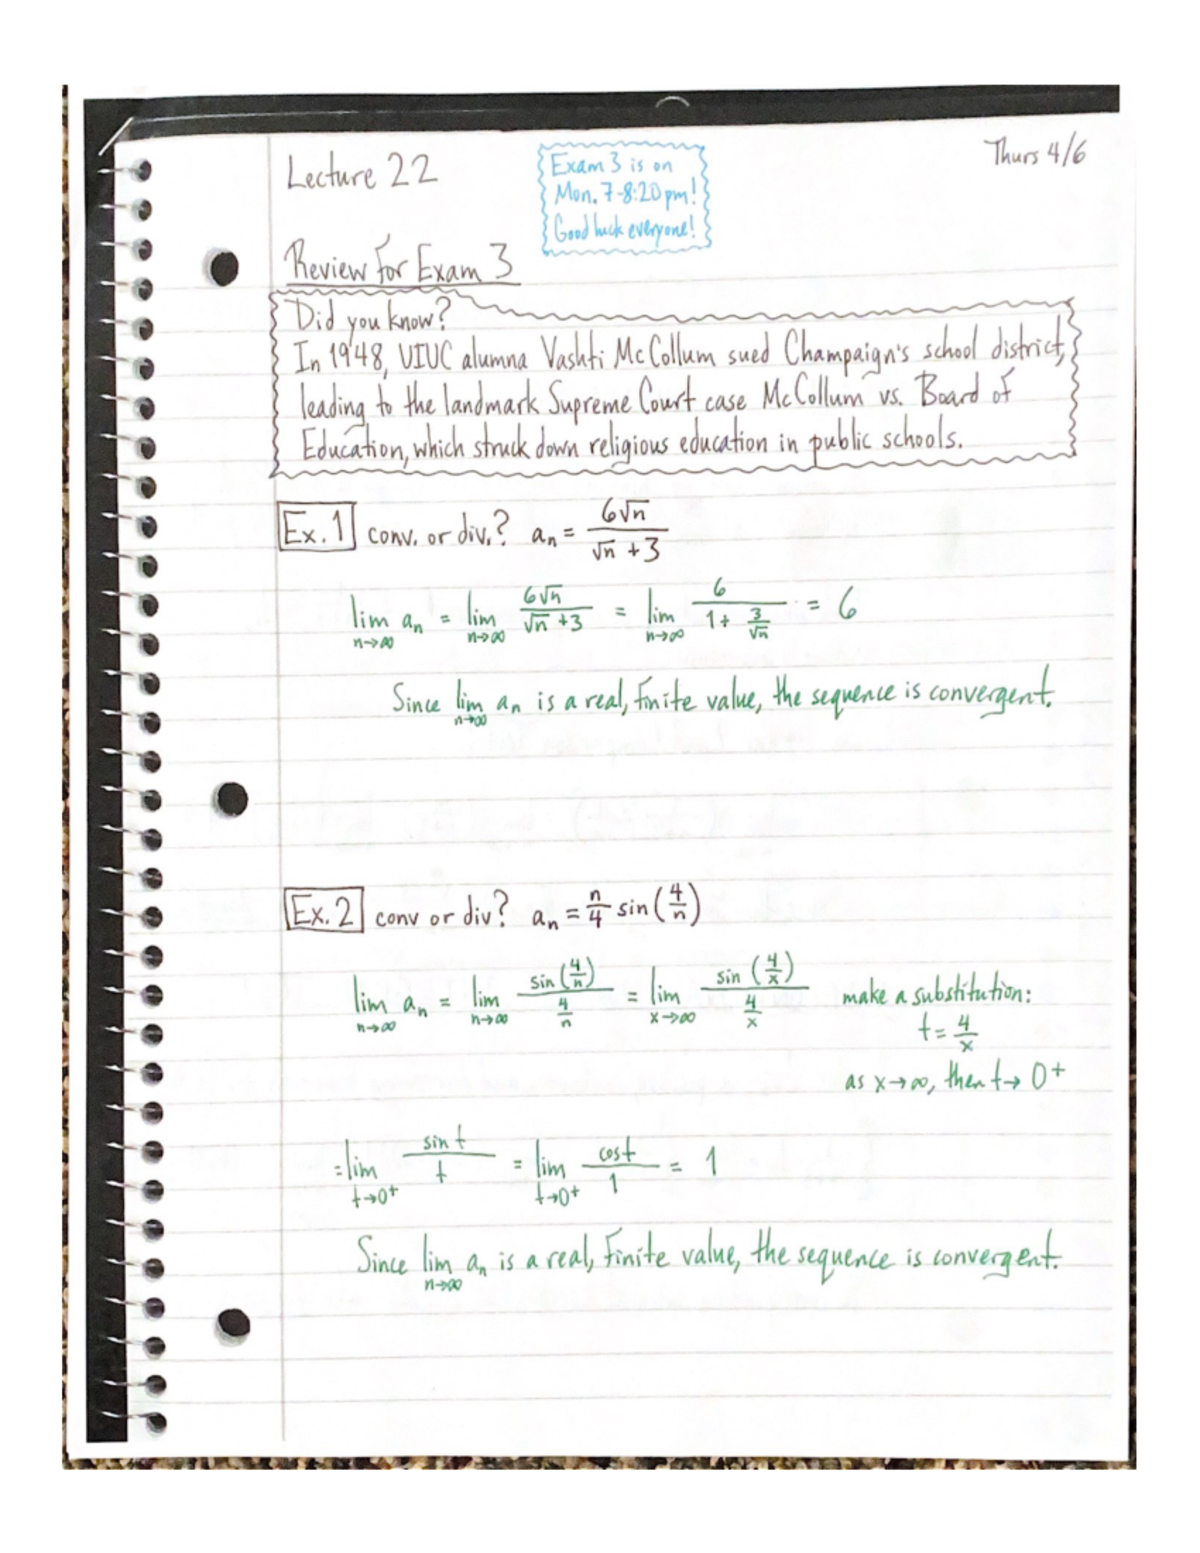 Lecture 22
Exam 3 is on
Mon. 7-8:20 pm!
Good luck everyone!
Thurs 4/6
Review for Exam 3
Did you know?
In 1948, UIUC alumna Vashti McCollum sued Champaign's school district,
leading to the landmark Supreme Court case McCollum vs. Board of
Education, which struck down religious education in public schools.
Ex. 1 conv. or div.? a_n = 6√n / (√n + 3)
lim_{n→∞} a_n = lim_{n→∞} 6√n / (√n + 3) = lim_{n→∞} 6 / (1 + 3/√n) = 6
Since lim_{n→∞} a_n is a real, finite value, the sequence is convergent.
Ex. 2 conv or div? a_n = n/4 sin(4/n)
lim_{n→∞} a_n = lim_{n→∞} sin(4/n) / (4/n) = lim_{x→∞} sin(4/x) / (4/x) make a substitution:
t = 4/x
as x→∞, then t→0⁺
= lim_{t→0⁺} sin t / t = lim_{t→0⁺} cos t / 1 = 1
Since lim_{n→∞} a_n is a real, finite value, the sequence is convergent.